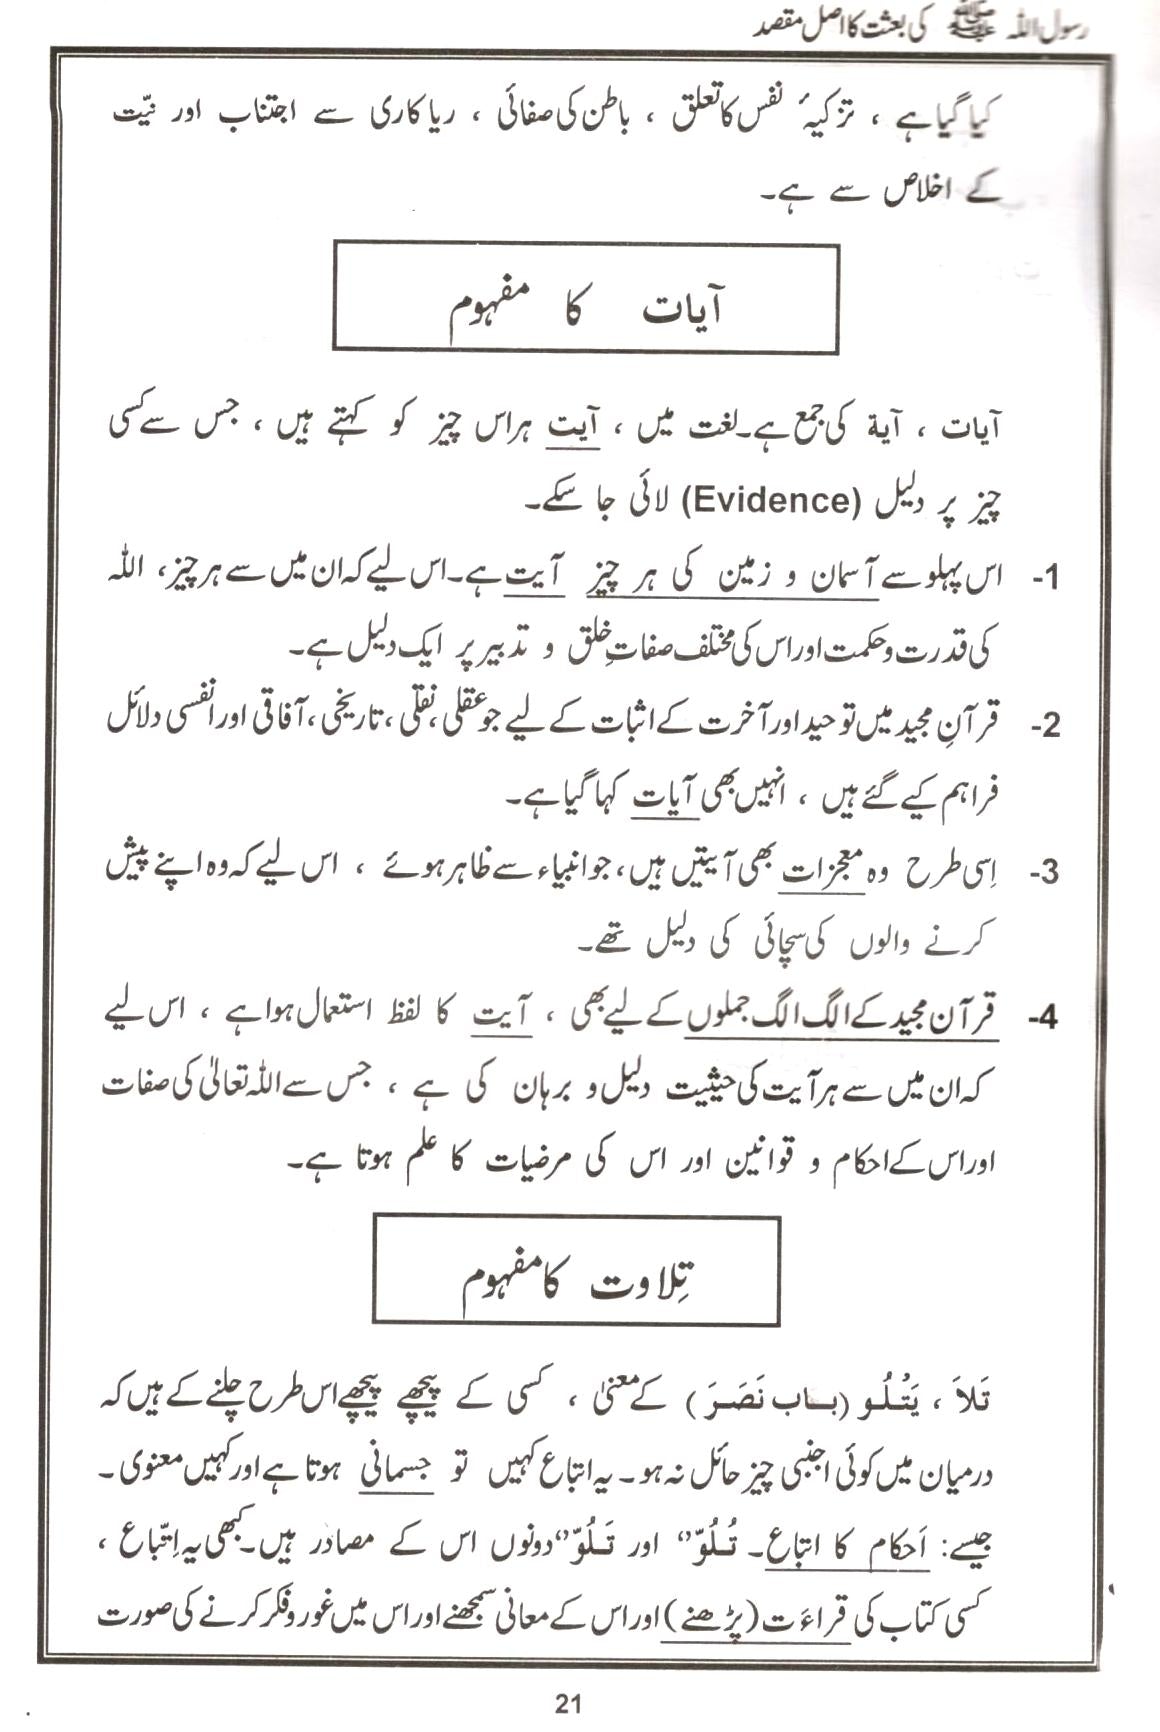 رسول اللہ ﷺ کی بعثت کا اصل مقصد
کیا گیا ہے ، تزکیۂ نفس کا تعلق ، باطن کی صفائی ، ریاکاری سے اجتناب اور نیّت
کے اخلاص سے ہے۔
آیات کا مفہوم
آیات ، آیة کی جمع ہے۔ لغت میں ، آیت ہر اس چیز کو کہتے ہیں ، جس سے کسی
چیز پر دلیل (Evidence) لائی جا سکے۔
1- اس پہلو سے آسمان و زمین کی ہر چیز آیت ہے۔ اس لیے کہ ان میں سے ہر چیز، اللہ
کی قدرت و حکمت اور اس کی مختلف صفاتِ خلق و تدبیر پر ایک دلیل ہے۔
2- قرآنِ مجید میں توحید اور آخرت کے اثبات کے لیے جو عقلی، نقلی، تاریخی، آفاقی اور انفسی دلائل
فراہم کیے گئے ہیں ، انہیں بھی آیات کہا گیا ہے۔
3- اِسی طرح وہ معجزات بھی آیتیں ہیں، جو انبیاء سے ظاہر ہوئے ، اس لیے کہ وہ اپنے پیش
کرنے والوں کی سچائی کی دلیل تھے۔
4- قرآن مجید کے الگ الگ جملوں کے لیے بھی ، آیت کا لفظ استعمال ہوا ہے ، اس لیے
کہ ان میں سے ہر آیت کی حیثیت دلیل و برہان کی ہے ، جس سے اللہ تعالیٰ کی صفات
اور اس کے احکام و قوانین اور اس کی مرضیات کا علم ہوتا ہے۔
تِلاوت کا مفہوم
تَلاَ ، يَتْلُو (باب نَصَرَ) کے معنیٰ ، کسی کے پیچھے پیچھے اس طرح چلنے کے ہیں کہ
درمیان میں کوئی اجنبی چیز حائل نہ ہو۔ یہ اتباع کہیں تو جسمانی ہوتا ہے اور کہیں معنوی۔
جیسے: اَحکام کا اتباع۔ تُلُوّ'' اور تَلُوّ'' دونوں اس کے مصادر ہیں۔ کبھی یہ اِتّباع ،
کسی کتاب کی قراءَت (پڑھنے) اور اس کے معانی سمجھنے اور اس میں غور و فکر کرنے کی صورت
21